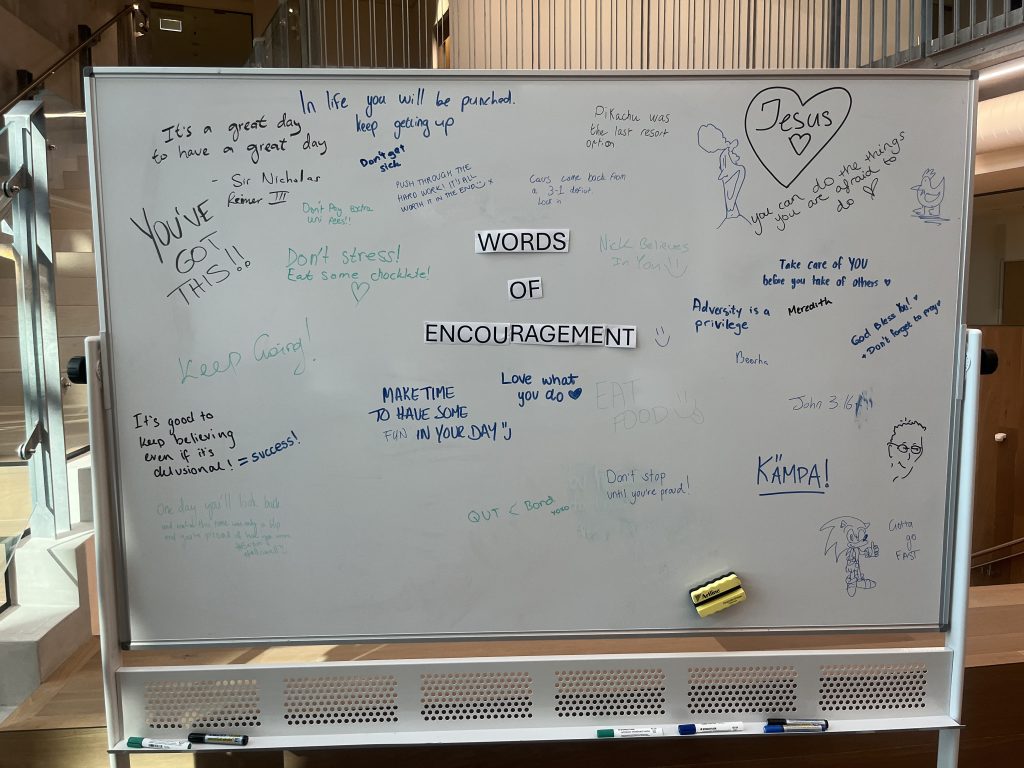 In life you will be punched.
keep getting up
It's a great day
to have a great day
- Sir Nicholas
III
Don't get
sick
PUSH THROUGH THE
HARD WORK! IT'S ALL
WORTH IT IN THE END
Cavs come back from
a 3-1 deficit.
Lock in
Pikachu was
the last resort
option
Jesus
you can do the things
you are afraid to
do
YOU'VE
GOT
THIS!!
Don't Pay Extra
Uni Fees!!
Don't stress!
Eat some chocklate!
WORDS
OF
ENCOURAGEMENT
Nick Believes
In You
Take care of YOU
before you take of others
Adversity is a
privilege
Meredith
God Bless You!
+ Don't forget to pray
Keep Going!
MAKE TIME
TO HAVE SOME
FUN IN YOUR DAY
Love what
you do
EAT
FOOD
John 3:16
It's good to
keep believing
even if it's
delusional! = success!
One day you'll look back
QUT < Bond
Don't stop
until you're proud!
KÄMPA!
Gotta
go
FAST
Artline